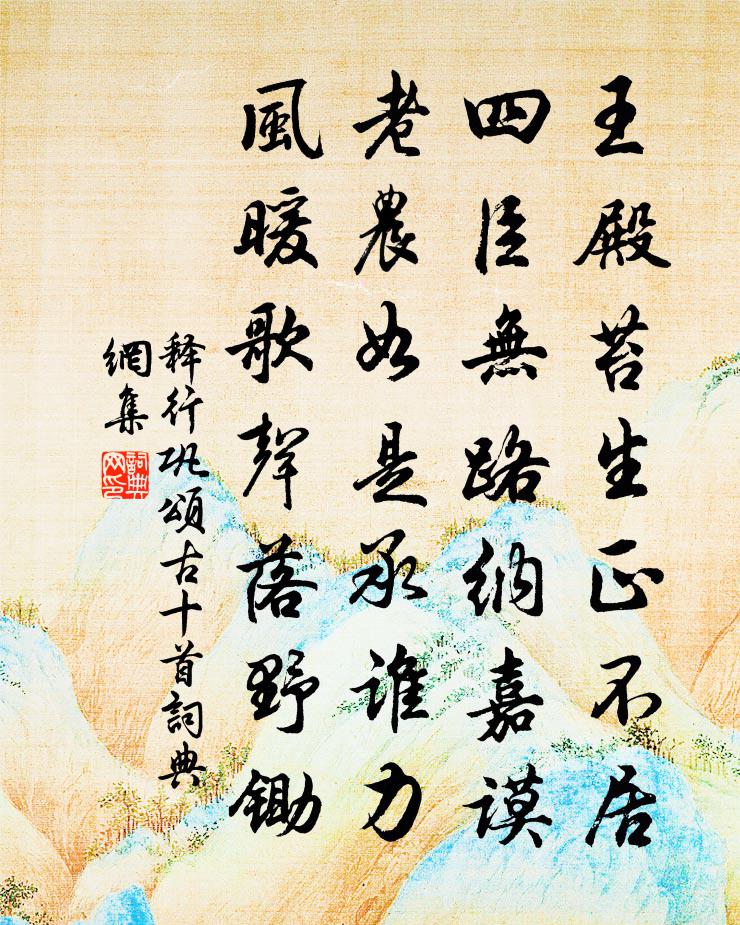 王殿苔生正不居
四臣無路納嘉謨
老農如是承誰力
風暖歌聲落野鋤
释行巩頌古十首詞典
網集